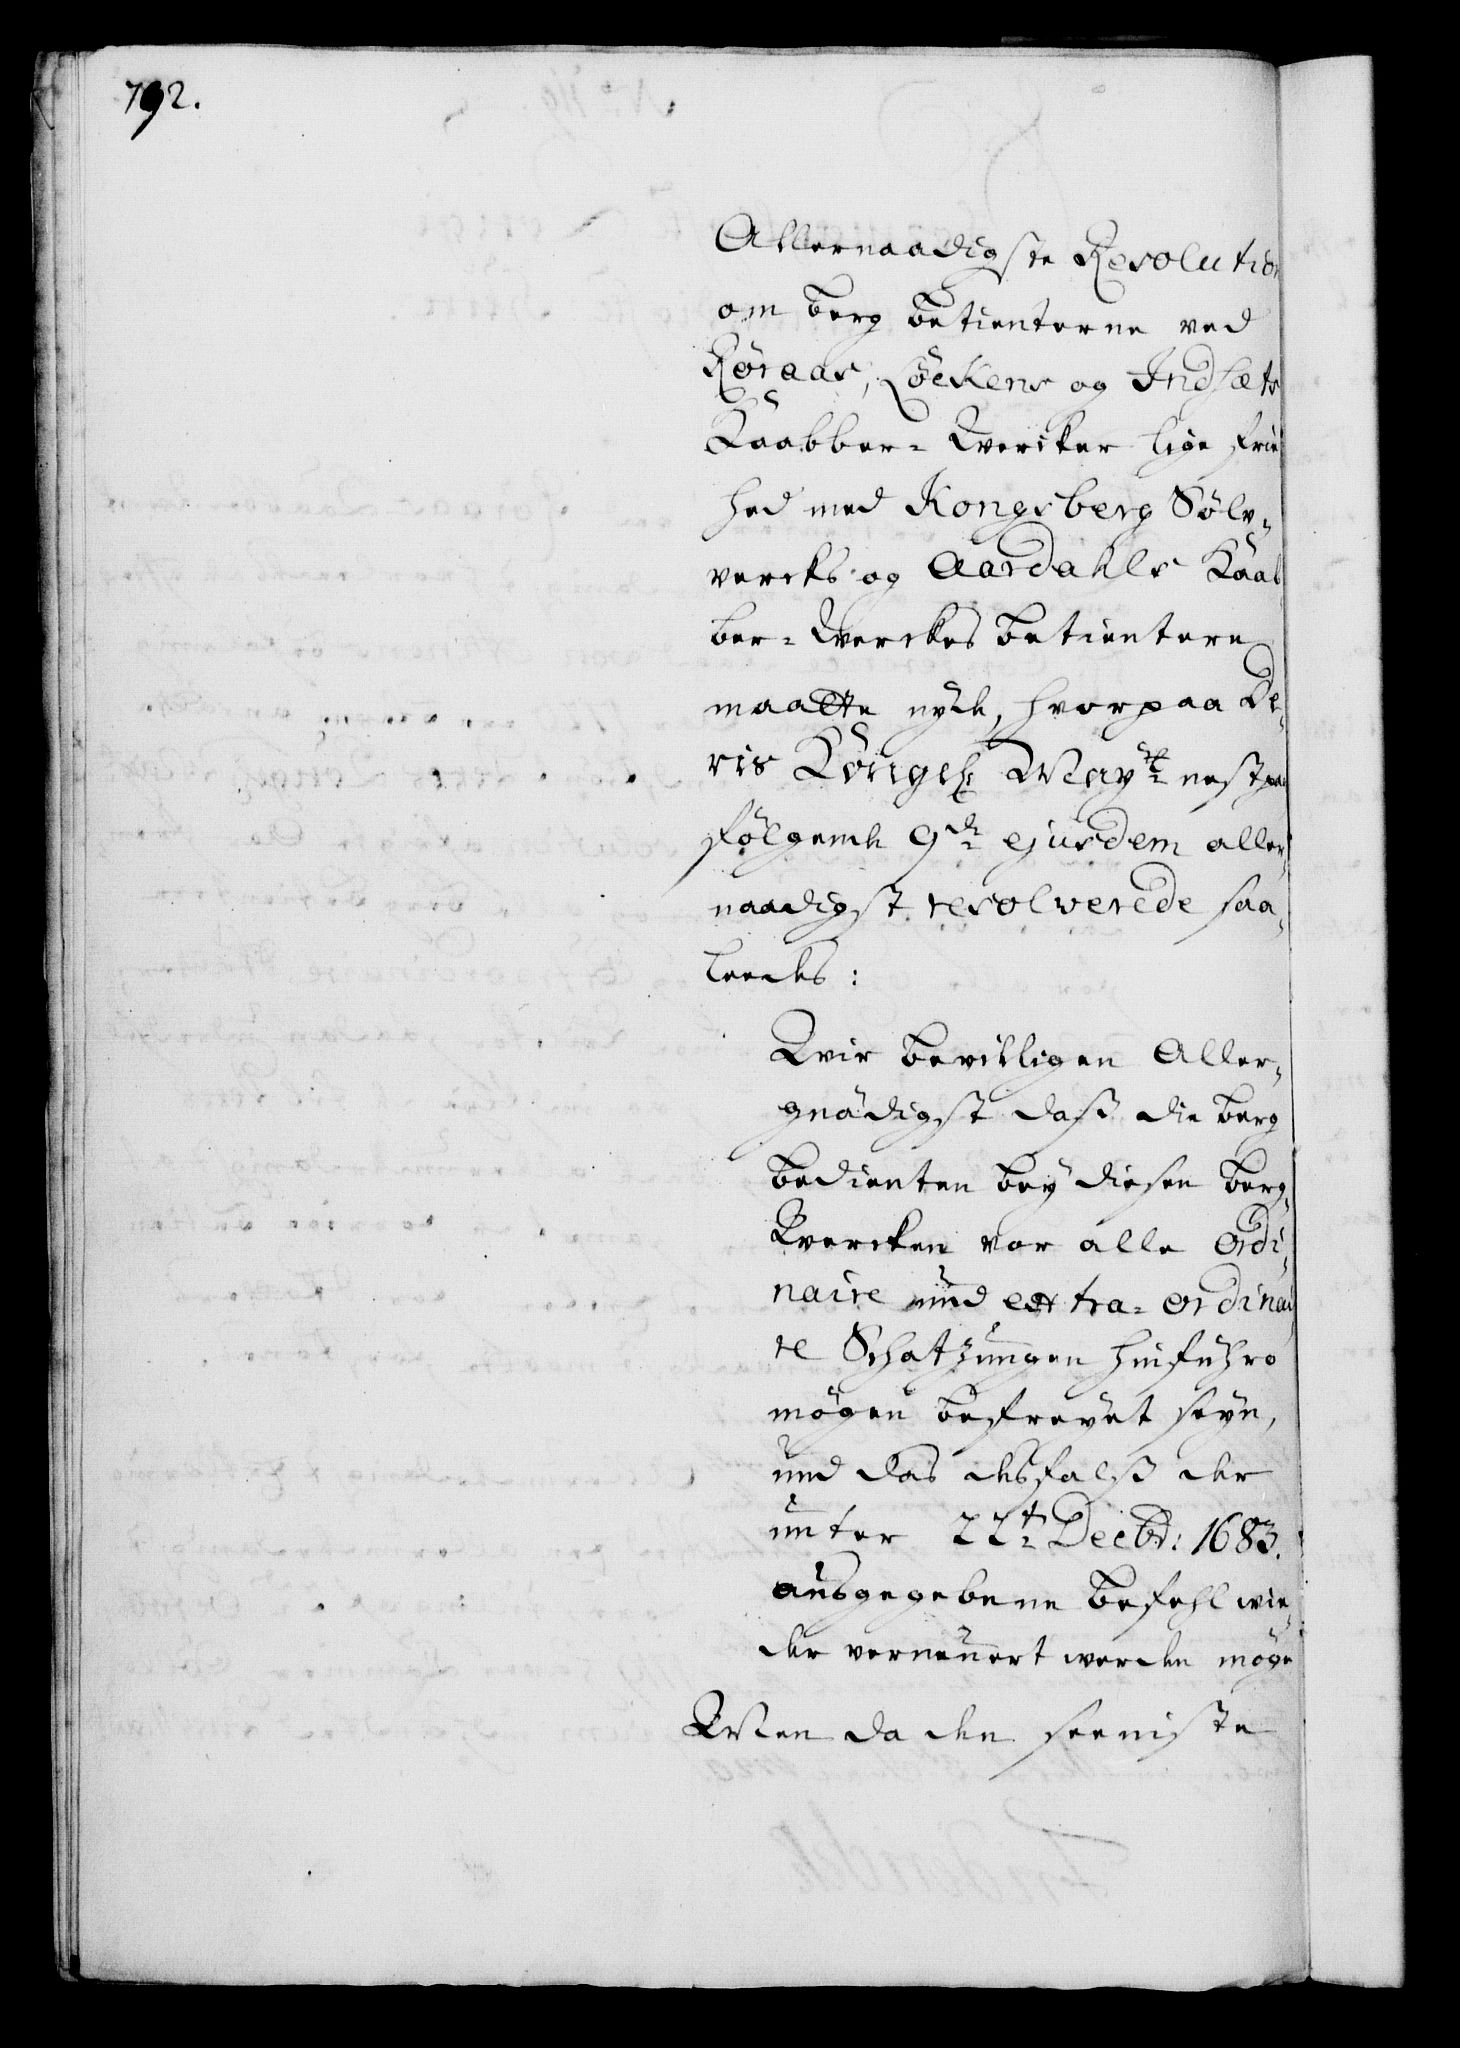 792.
Allernaadigste Resolution
om berg betienterne ved
Røraas, Löckens og Indsæts
Kaabber-Wercker lige frie
hed med Kongsberg Sölv-
vercks og Aardahls Kaab
ber-Werckes betientere
maatte nyde, hvorpaa De-
ris Kongel: Mayt: nest paa
fölgende 9de ejusdem aller-
naadigst resolverede saa-
leedes:
Wir bewilligen Aller-
gnädigst daß die berg
bedienten bey diesen berg-
Wercken vor alle ordi-
naire und extra-ordinai
re Schatzungen hinführo
mögen befreyet seyn,
und das desfalß der
unter 22t Decbr: 1683.
ausgegebene Befehl wie-
der verneuert werden möge
Men da den seeniste